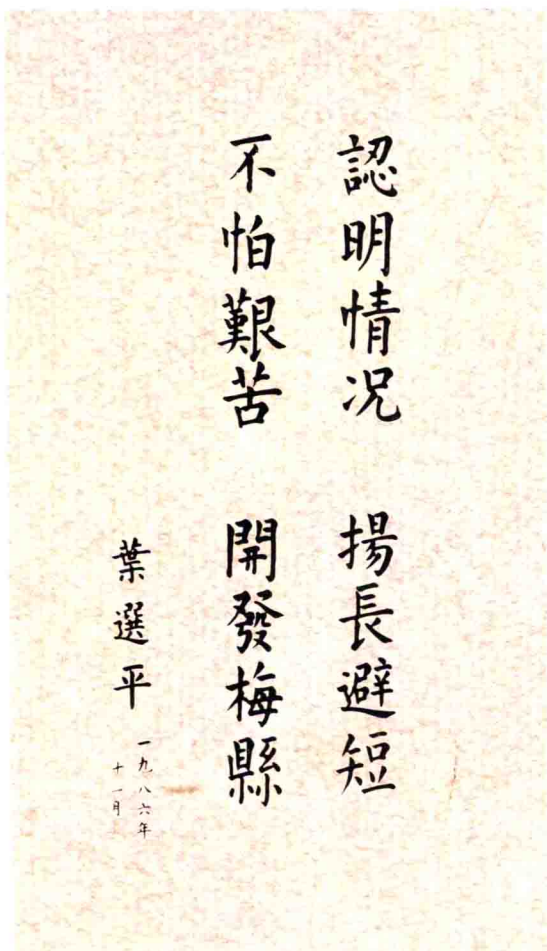 認明情况　揚長避短
不怕艱苦　開發梅縣
葉選平
一九八六年
十一月